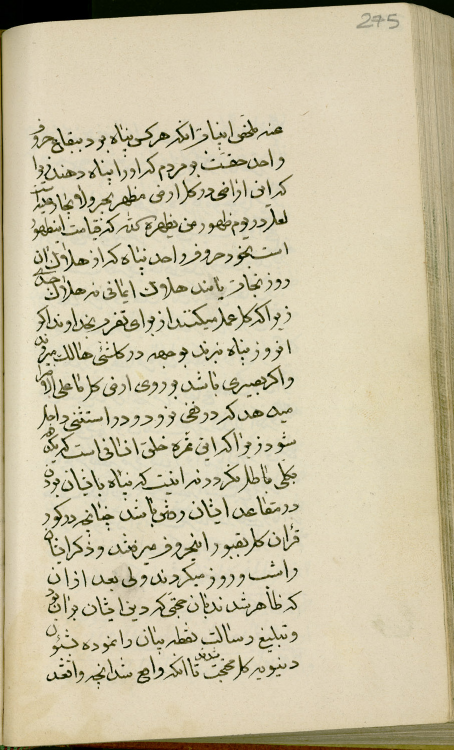 245
عنه ملخص این باب آنکه هرکس پناه بود ببقاع حروف
واحد حقست بر مردم که او را پناه دهند زیرا
که این اراضی در کل ارض مظهر یجیر ولا یجار علیه
لعل در یوم ظهور من یظهره الله که قیامت
است بخود حروف واحد پناه که از هلاک آن
روز نجات یابند هلاک ایمانی نه هلاک
زیرا که کل عمل میکنند از برای تقرب بخداوند اگر
آن روز پناه نبرند بوجهه در کل شیء هالک میروند
واگر بصیری باشد بر روی ارض کل ما علی الارض را
میدهد که در نفی نرود و در استثنی داخل
شود زیرا که این ثمره خلق انسانی است که
کلی باطل نگردد نه اینست که پناه بایشان بودن
در مقاعد ایشان باشد چنانچه در کور
قرآن کل بقبور این حروف میرفتند و ذکر ایشان
را شب و روز میکردند ولی بعد از آن
که ظاهر شدند بآن حجتی که دین ایشان بر آن بود
وتبلیغ رسالت نقطه بیان را نموده شئون
دنیویه کل محتجب شدند تا آنکه واقع شد آنچه واقع شد